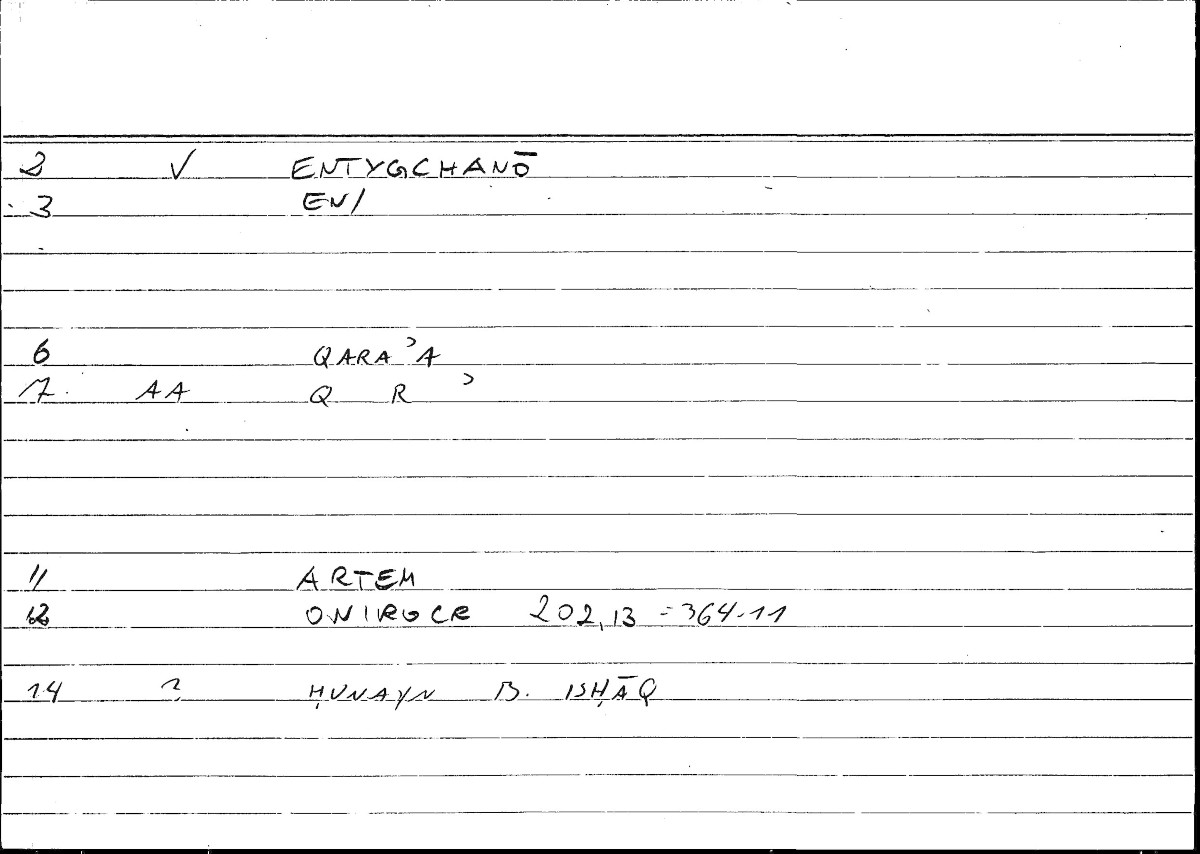 2 V ENTYGCHANŌ
3 EN/
6 QARAʾA
7 AA Q R ʾ
11 ARTEM
12 ONIROCR 202,13 = 364.11
14 ? ḤUNAYN B. ISḤĀQ